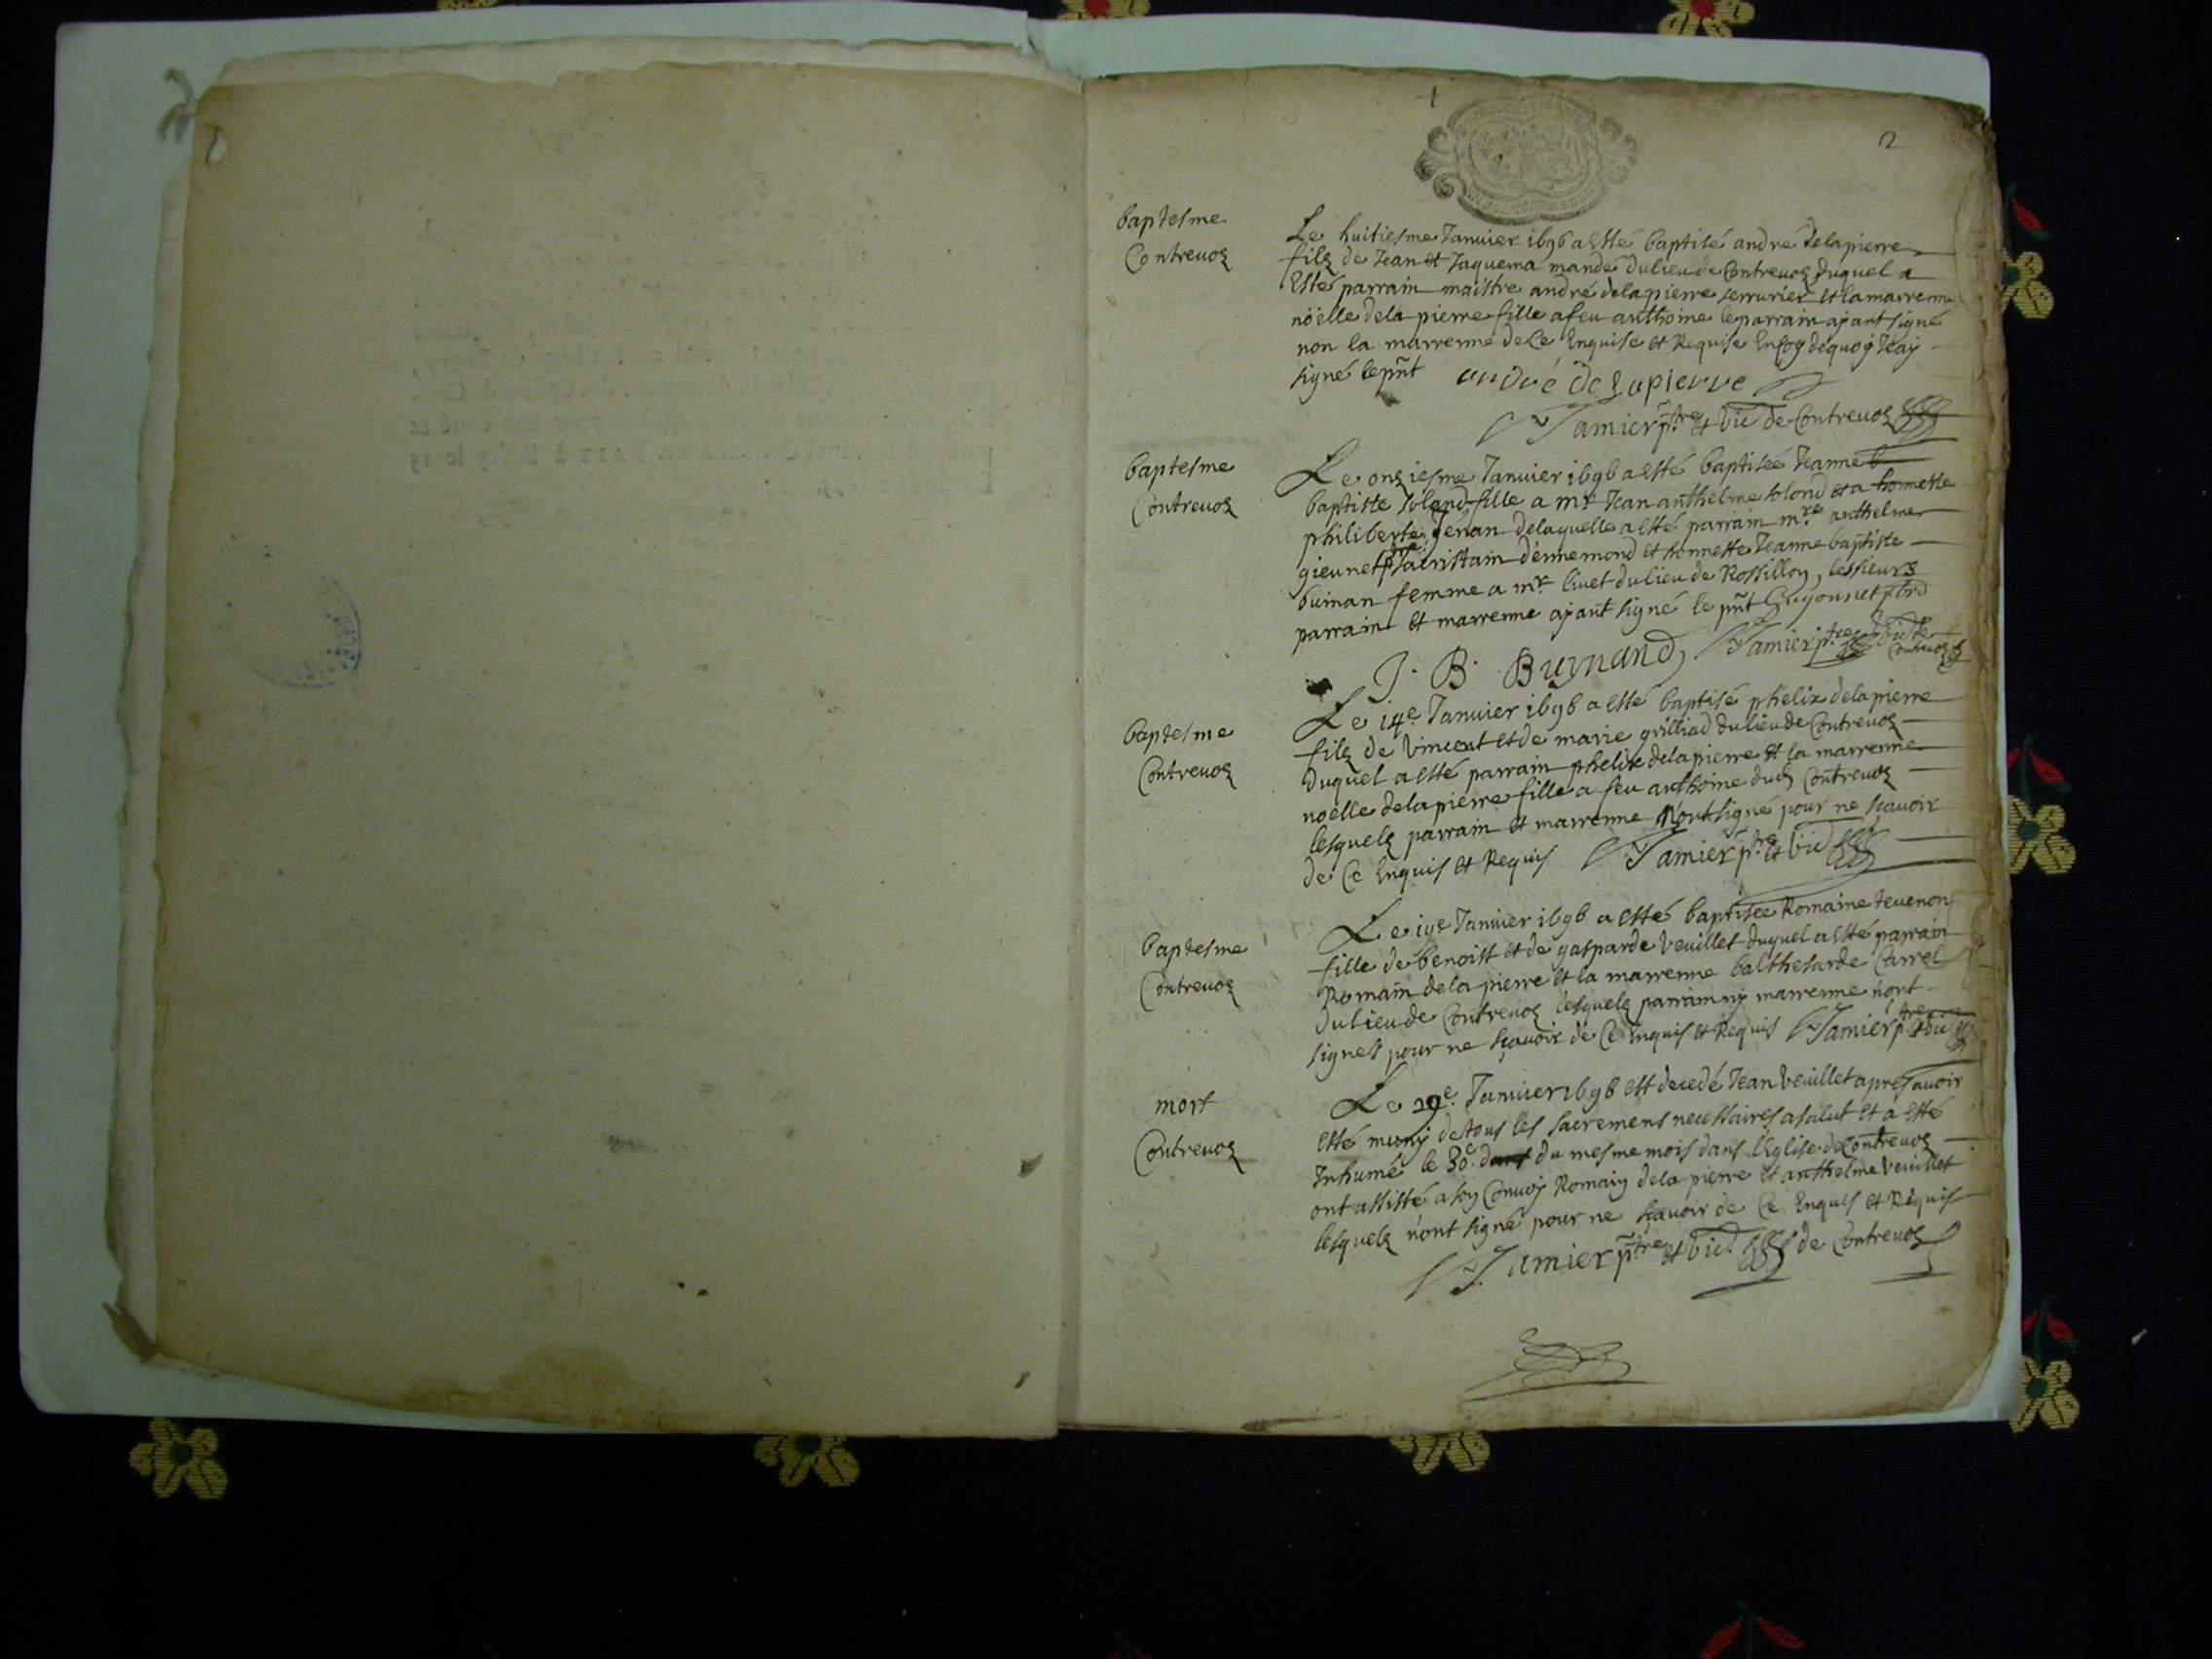 2
baptesme
Contreuoz
Le huitiesme Januier 1696 a esté baptisé andré delapierre
filz de Jean et Jaquema mande du lieu de Contreuoz duquel a
Esté parrain maistre andré delapierre serrurier et la marrenne
noëlle dela pierre fille a feu anthoine le parrain ajant signé
non la marrenne de Ce Enquise et Requise En foy dequoy Jeaij
signé le pnt andré de lapierre
Jamier ptre et vic de Contreuoz
baptesme
Contreuoz
Le onziesme Januier 1696 a esté baptisée Jeanne
baptiste solond fille a mr Jean anthelme solond et a honneste
philiberte Jenan delaquelle a esté parrain mre anthelme
gieunet ptre sacristain d'ennemond et honneste Jeanne baptiste
buinan femme a mr liuet du lieu de Rossillon, lessieurs
parrain et marrenne ajant signé le pnt Guyonnet pbre
J. B. Buynand Jamier ptre vic de Contreuoz
baptesme
Contreuoz
Le 14e Januier 1696 a esté baptisé phelix delapierre
filz de Vincent et de marie grilliad du lieu de Contreuoz
duquel a esté parrain phelix delapierre et la marrenne
noëlle delapierre fille a feu anthoine dud Contreuoz
lesquelz parrain et marrenne n'ont signé pour ne sçauoir
de Ce Enquis et Requis Jamier ptre et vic
baptesme
Contreuoz
Le 19e Januier 1696 a esté baptisée Romaine teuenon
fille de benoist et de gasparde Veuillet duquel a esté parrain
Romain dela pierre et la marrenne balthesarde Carrel
du lieu de Contreuoz lesquelz parrain nij marrenne n'ont
signez pour ne sçauoir de Ce Enquis et Requis Jamier ptre et vic
mort
Contreuoz
Le 29e Januier 1696 est decedé Jean Veuillet apres auoir
esté munij de tous les sacremens necessaires a salut et a esté
Inhumé le 30e du mesme mois dans l'Eglise de Contreuoz
ont assisté a soy Conuoij Romaiy dela pierre et anthelme Veuillet
lesquelz n'ont signé pour ne sçauoir de Ce Enquis et Requis
Jamier ptre et vic de Contreuoz